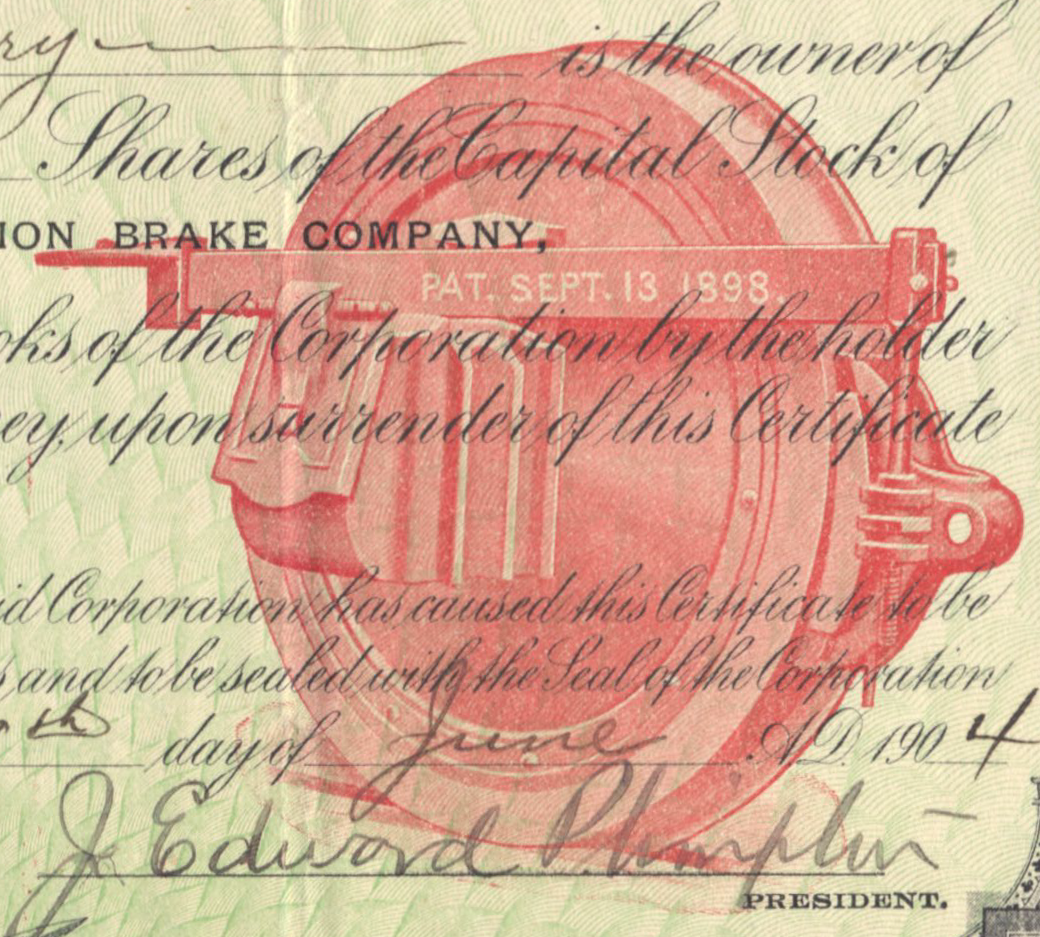 is the owner of
Shares of the Capital Stock of
ION BRAKE COMPANY,
PAT. SEPT. 13 1898.
oks of the Corporation by the holder
ey, upon surrender of this Certificate
id Corporation has caused this Certificate to be
s and to be sealed with the Seal of the Corporation
th day of June A.D. 1904
J. Edward Plimpton
PRESIDENT.